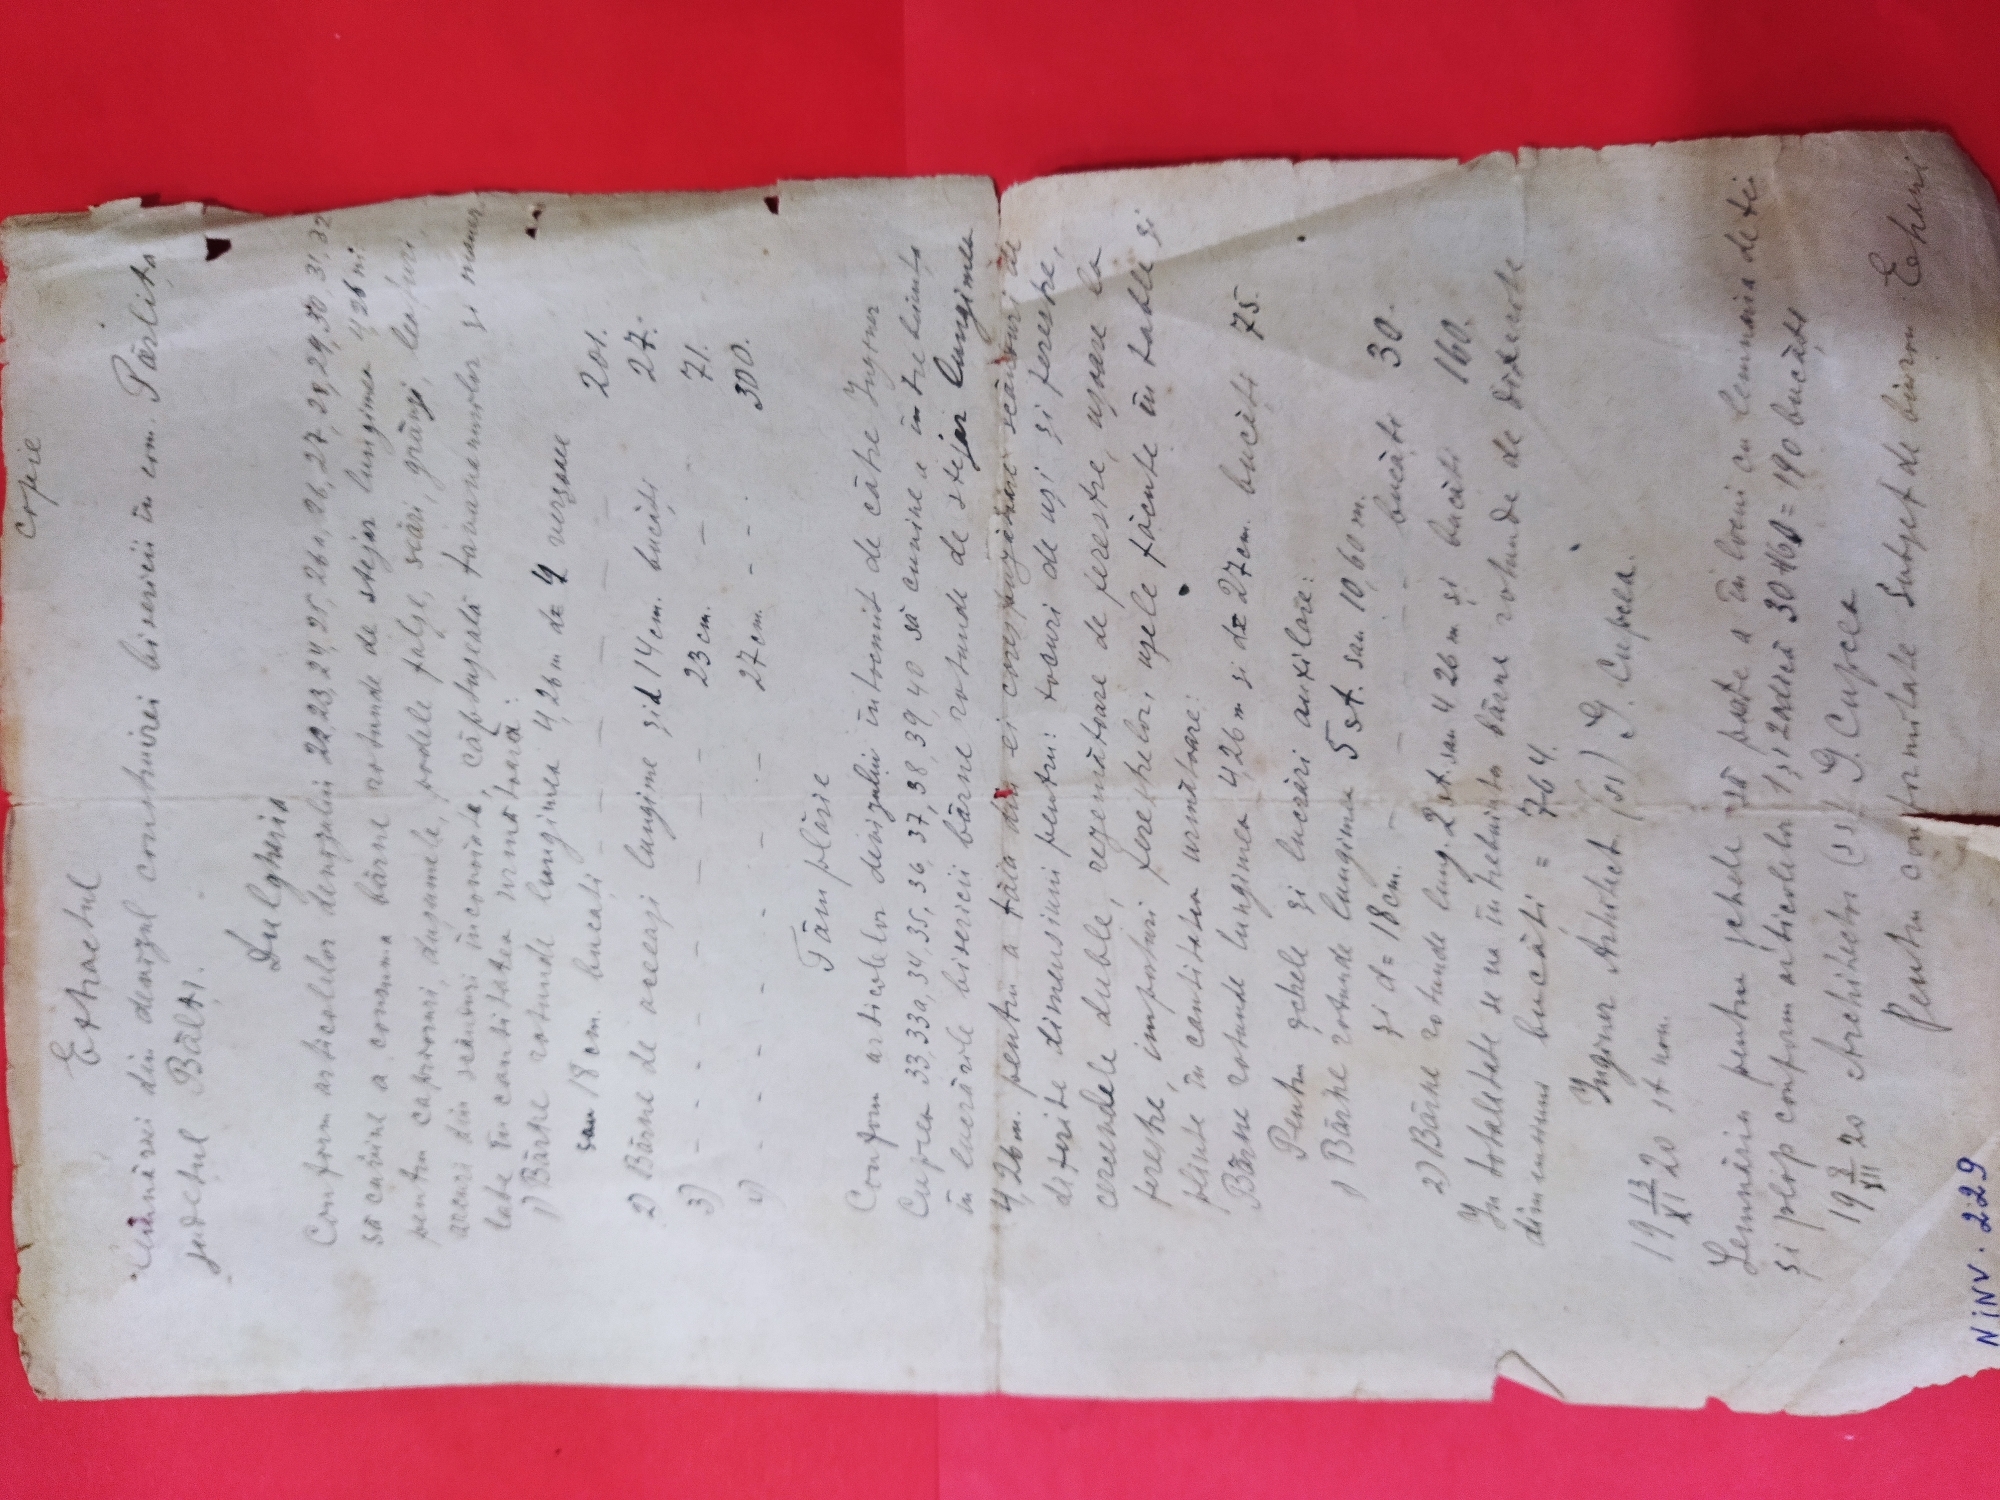 copie
Extractul
Lemnăriei din devizul construirei bisericii în com. Pârlița
județul Bălți.
Dulgheria
Conform articolelor devizului 22, 23, 24, 25, 26a, 26, 27, 28, 29, 30, 31, 32
să cuvine a consuma bârne rotunde de stejar lungimea 4,26 m
pentru capriori, dușumele, podele false, scări, grinzi, leafuri,
arcuri din scânduri încovoiate, căptușeală și
late în cantitatea următoare:
1) Bârne rotunde lungimea 4,26 m d= 4 verșoace
sau 18 cm. bucăți — — — — 201.
2) Bârne de aceeași lungime și d 14 cm. bucăți 27.
3) - - - - — — — 23 cm. — - 71.
4) - - - - - - 27 cm. - - - 300.
Tâmplărie
Conform articolelor devizului întocmit de către Inginer
Cupcea 33, 33a, 34, 35, 36, 37, 38, 39, 40 să cuvine a întrebuința
în lucrările bisericii bârne rotunde de stejar lungimea
4,26 m. pentru a tăia din ei corespunzătoare scânduri de
diferite dimensiuni pentru: tocuri de uși și ferestre,
cercevele duble, rezemătoare de ferestre, ușoare la
ferestre, imposturi ferestrelor, ușele făcute în table și
plinte în cantitatea următoare:
Bârne rotunde lungimea 4,26 m și d= 27 cm. bucăți 75.
Pentru șchele și lucrări auxilare:
1) Bârne rotunde lungimea 5 st. sau 10,60 m.
și d= 18 cm. — — - - bucăți 30.
2) Bârne rotunde lung. 2 st. sau 4,26 m și bucăți 160.
In totalitate se va întrebuința bârne rotunde de diferite
dimensiuni bucăți = 764.
Inginer Arhitect (ss) G. Cupcea.
19 13/XI 20 st. nou.
Lemnăria pentru șchele să poate a înlocui cu lemnăria de tei
și plop conform articolelor 1 și 2 adică 30+160 = 190 bucăți
19 8/XII 20 Architector (ss) G. Cupcea
Pentru conformitate Subșef de birou
N INV. 229